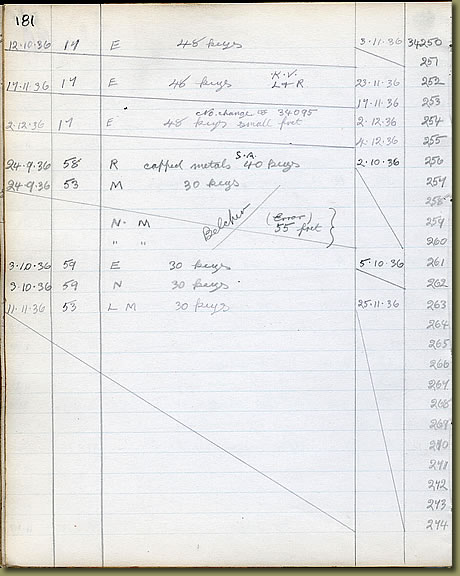 181
12.10.36 17 E 48 keys 3.11.36 34250
251
K.V.
17.11.36 17 E 46 keys L+R 23.11.36 252
17.11.36 253
No. change 34095
2.12.36 17 E 48 keys small fret 2.12.36 254
4.12.36 255
S.A.
24.9.36 58 R capped metals 40 keys 2.10.36 256
24.9.36 53 M 30 keys 257
258
N. M Belcher (Error) 55 fret 259
" " 260
3.10.36 59 E 30 keys 5.10.36 261
3.10.36 59 N 30 keys 262
11.11.36 53 L M 30 keys 25.11.36 263
264
265
266
267
268
269
270
271
272
273
274